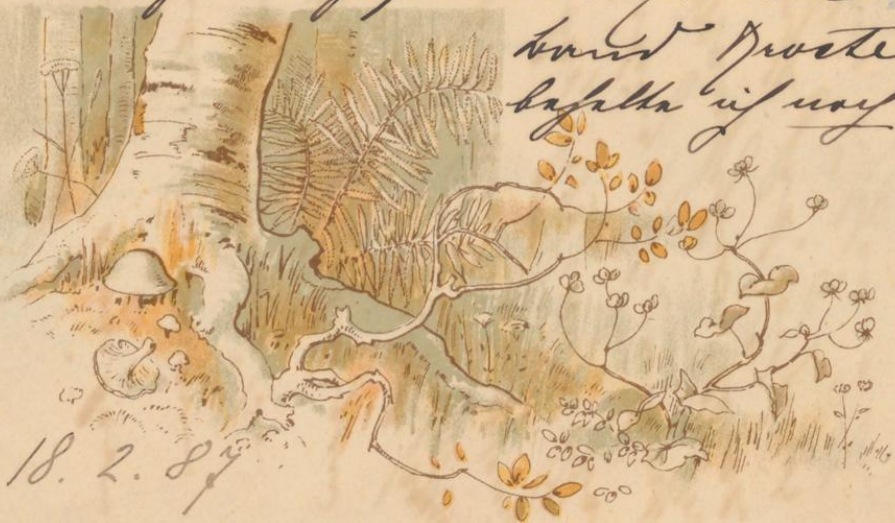 band Droste
behalte ich noch
18. 2. 87